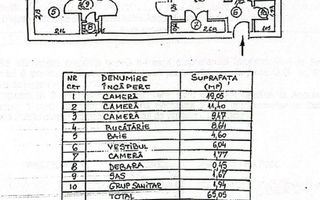 5
9
8
7
6
NR CRT DENUMIRE ÎNCĂPERE SUPRAFAȚA (MP)
1 CAMERĂ 19,05
2 CAMERĂ 11,40
3 CAMERĂ 9,47
4 BUCĂTĂRIE 8,64
5 BAIE 4,60
6 VESTIBUL 6,04
7 CAMERĂ 1,77
8 DEBARA 0,45
9 SAS 1,67
10 GRUP SANITAR 1,94
TOTAL 65,05